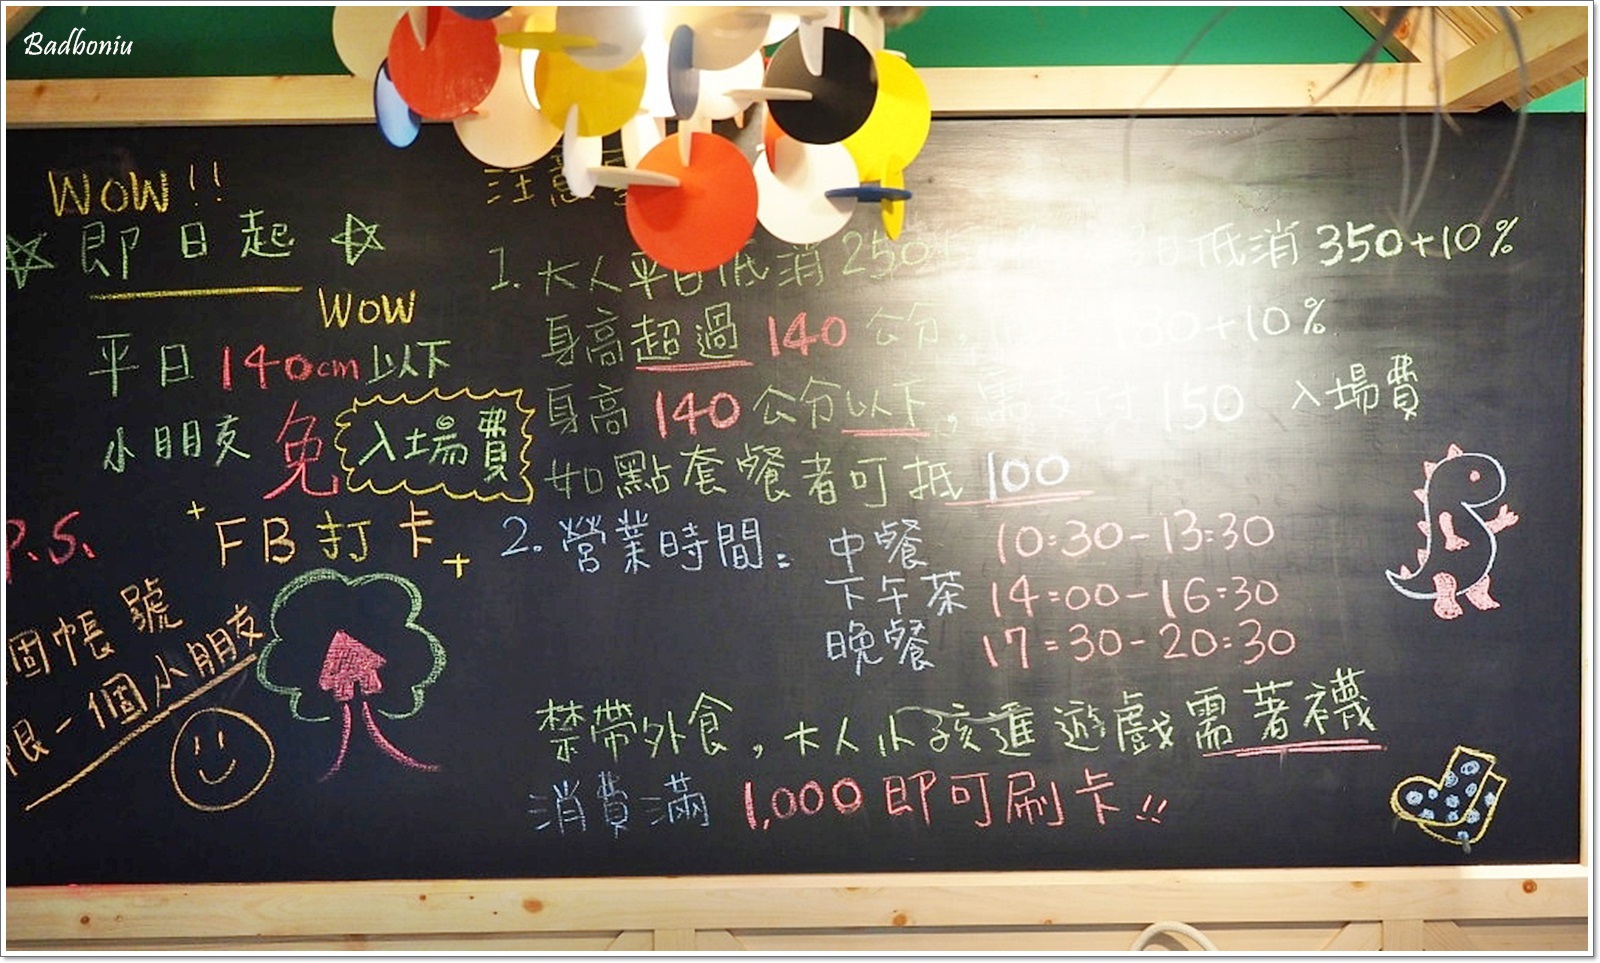 Badboniu
WOW!!
即日起
WOW
平日140cm以下
小朋友免入場費
P.S.
FB打卡
個帳號
限一個小朋友
注意
1. 大人平日低消250 日低消350+10%
身高超過140公分, 180+10%
身高140公分以下, 需支付150入場費
如點套餐者可抵100
2. 營業時間: 中餐 10:30-13:30
下午茶 14:00-16:30
晚餐 17:30-20:30
禁帶外食, 大人小孩進遊戲需著襪
消費滿1,000即可刷卡!!